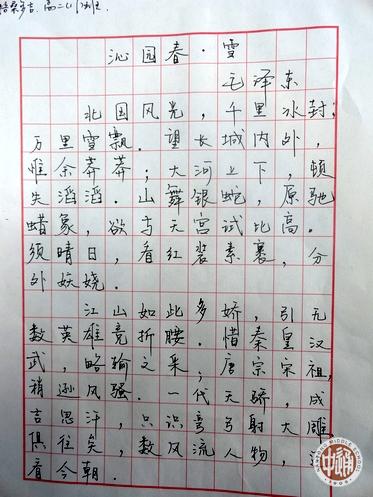 高二(1)班
沁园春·雪
毛泽东
北国风光,千里冰封,
万里雪飘.望长城内外,
惟余莽莽;大河上下,顿
失滔滔.山舞银蛇,原驰
蜡象,欲与天宫试比高。
须晴日,看红装素裹,分
外妖娆.
江山如此多娇,引无
数英雄竞折腰.惜秦皇汉
武,略输文采;唐宗宋祖,
稍逊风骚.一代天骄,成
吉思汗,只识弯弓射大雕
俱往矣,数风流人物,
看今朝.